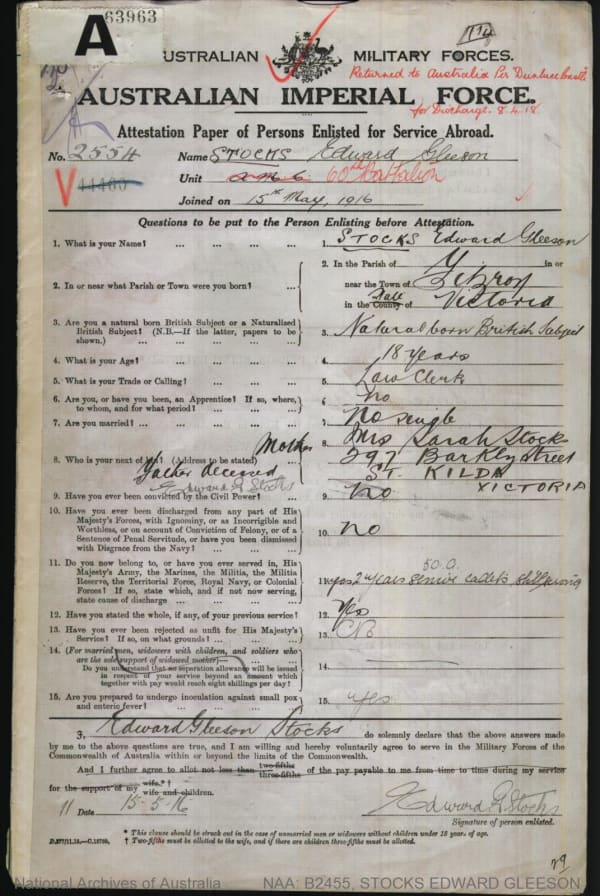 63963
A
AUSTRALIAN MILITARY FORCES.
Returned to Australia Per Dunluce Castle
AUSTRALIAN IMPERIAL FORCE.
for Discharge. 8.4.18
Attestation Paper of Persons Enlisted for Service Abroad.
No. 2554 Name STOCKS Edward Gleeson
V Unit 60th Battalion
Joined on 15th May, 1916
Questions to be put to the Person Enlisting before Attestation.
1. What is your Name? ... ... ... 1. STOCKS Edward Gleeson
2. In or near what Parish or Town were you born? ... 2. In the Parish of in or
near the Town of Fitzroy
in the County of Victoria
3. Are you a natural born British Subject or a Naturalized
British Subject? (N.B.—If the latter, papers to be
shown.) ... ... ... 3. Natural born British Subject
4. What is your Age? ... ... ... 4. 18 years
5. What is your Trade or Calling? ... ... ... 5. Law Clerk
6. Are you, or have you been, an Apprentice? If so, where,
to whom, and for what period? ... ... ... 6. no
7. Are you married? ... ... ... 7. No single
8. Who is your next of kin? (Address to be stated) Mother 8. Mrs Sarah Stocks
Father deceased 297 Barkly Street
Edward G Stocks ST. KILDA VICTORIA
9. Have you ever been convicted by the Civil Power? ... 9. No
10. Have you ever been discharged from any part of His
Majesty's Forces, with Ignominy, or as Incorrigible and
Worthless, or on account of Conviction of Felony, or of a
Sentence of Penal Servitude, or have you been dismissed
with Disgrace from the Navy? ... ... 10. no
11. Do you now belong to, or have you ever served in, His
Majesty's Army, the Marines, the Militia, the Militia
Reserve, the Territorial Force, Royal Navy, or Colonial
Forces? If so, state which, and if not now serving,
state cause of discharge ... ... ... 11. yes 2 years senior cadets still serving
12. Have you stated the whole, if any, of your previous service? 12. Yes
13. Have you ever been rejected as unfit for His Majesty's
Service? If so, on what grounds? ... ... 13.
14. (For married men, widowers with children, and soldiers who
are the sole support of widowed mother)—
Do you understand that no separation allowance will be issued
in respect of your service beyond an amount which
together with pay would reach eight shillings per day? 14.
15. Are you prepared to undergo inoculation against small pox
and enteric fever? ... ... ... 15. yes
I, Edward Gleeson Stocks do solemnly declare that the above answers made
by me to the above questions are true, and I am willing and hereby voluntarily agree to serve in the Military Forces of the
Commonwealth of Australia within or beyond the limits of the Commonwealth.
And I further agree to allot not less than two-fifths three-fifths of the pay payable to me from time to time during my service
for the support of my wife.* wife and children.†
11 Date 15-5-16 Edward G Stocks
Signature of person enlisted.
* This clause should be struck out in the case of unmarried men or widowers without children under 18 years of age.
† Two-fifths must be allotted to the wife, and if there are children three-fifths must be allotted.
National Archives of Australia NAA: B2455, STOCKS EDWARD GLEESON